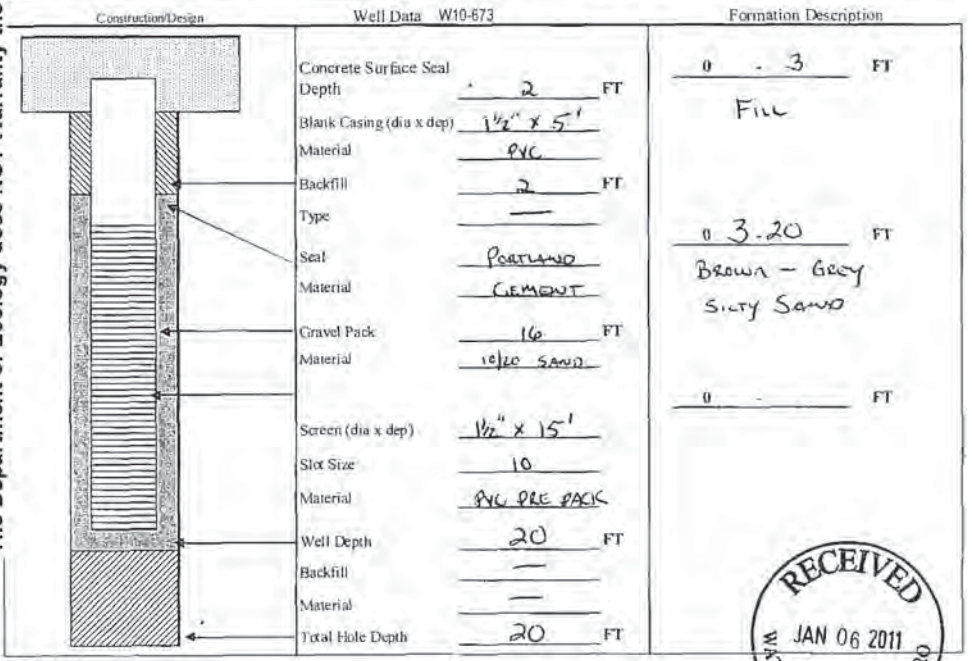 Construction/Design
Well Data W10-673
Formation Description
Concrete Surface Seal
Depth 2 FT
Blank Casing (dia x dep) 1 1/2" x 5'
Material PVC
Backfill 2 FT
Type —
Seal PORTLAND
Material CEMENT
Gravel Pack 16 FT
Material 10/20 SAND
Screen (dia x dep) 1 1/2" x 15'
Slot Size 10
Material PVC PRE PACK
Well Depth 20 FT
Backfill —
Material —
Total Hole Depth 20 FT
0 - 3 FT
FILL
0 3-20 FT
BROWN - GREY
SILTY SAND
0 - FT
RECEIVED
JAN 06 2011